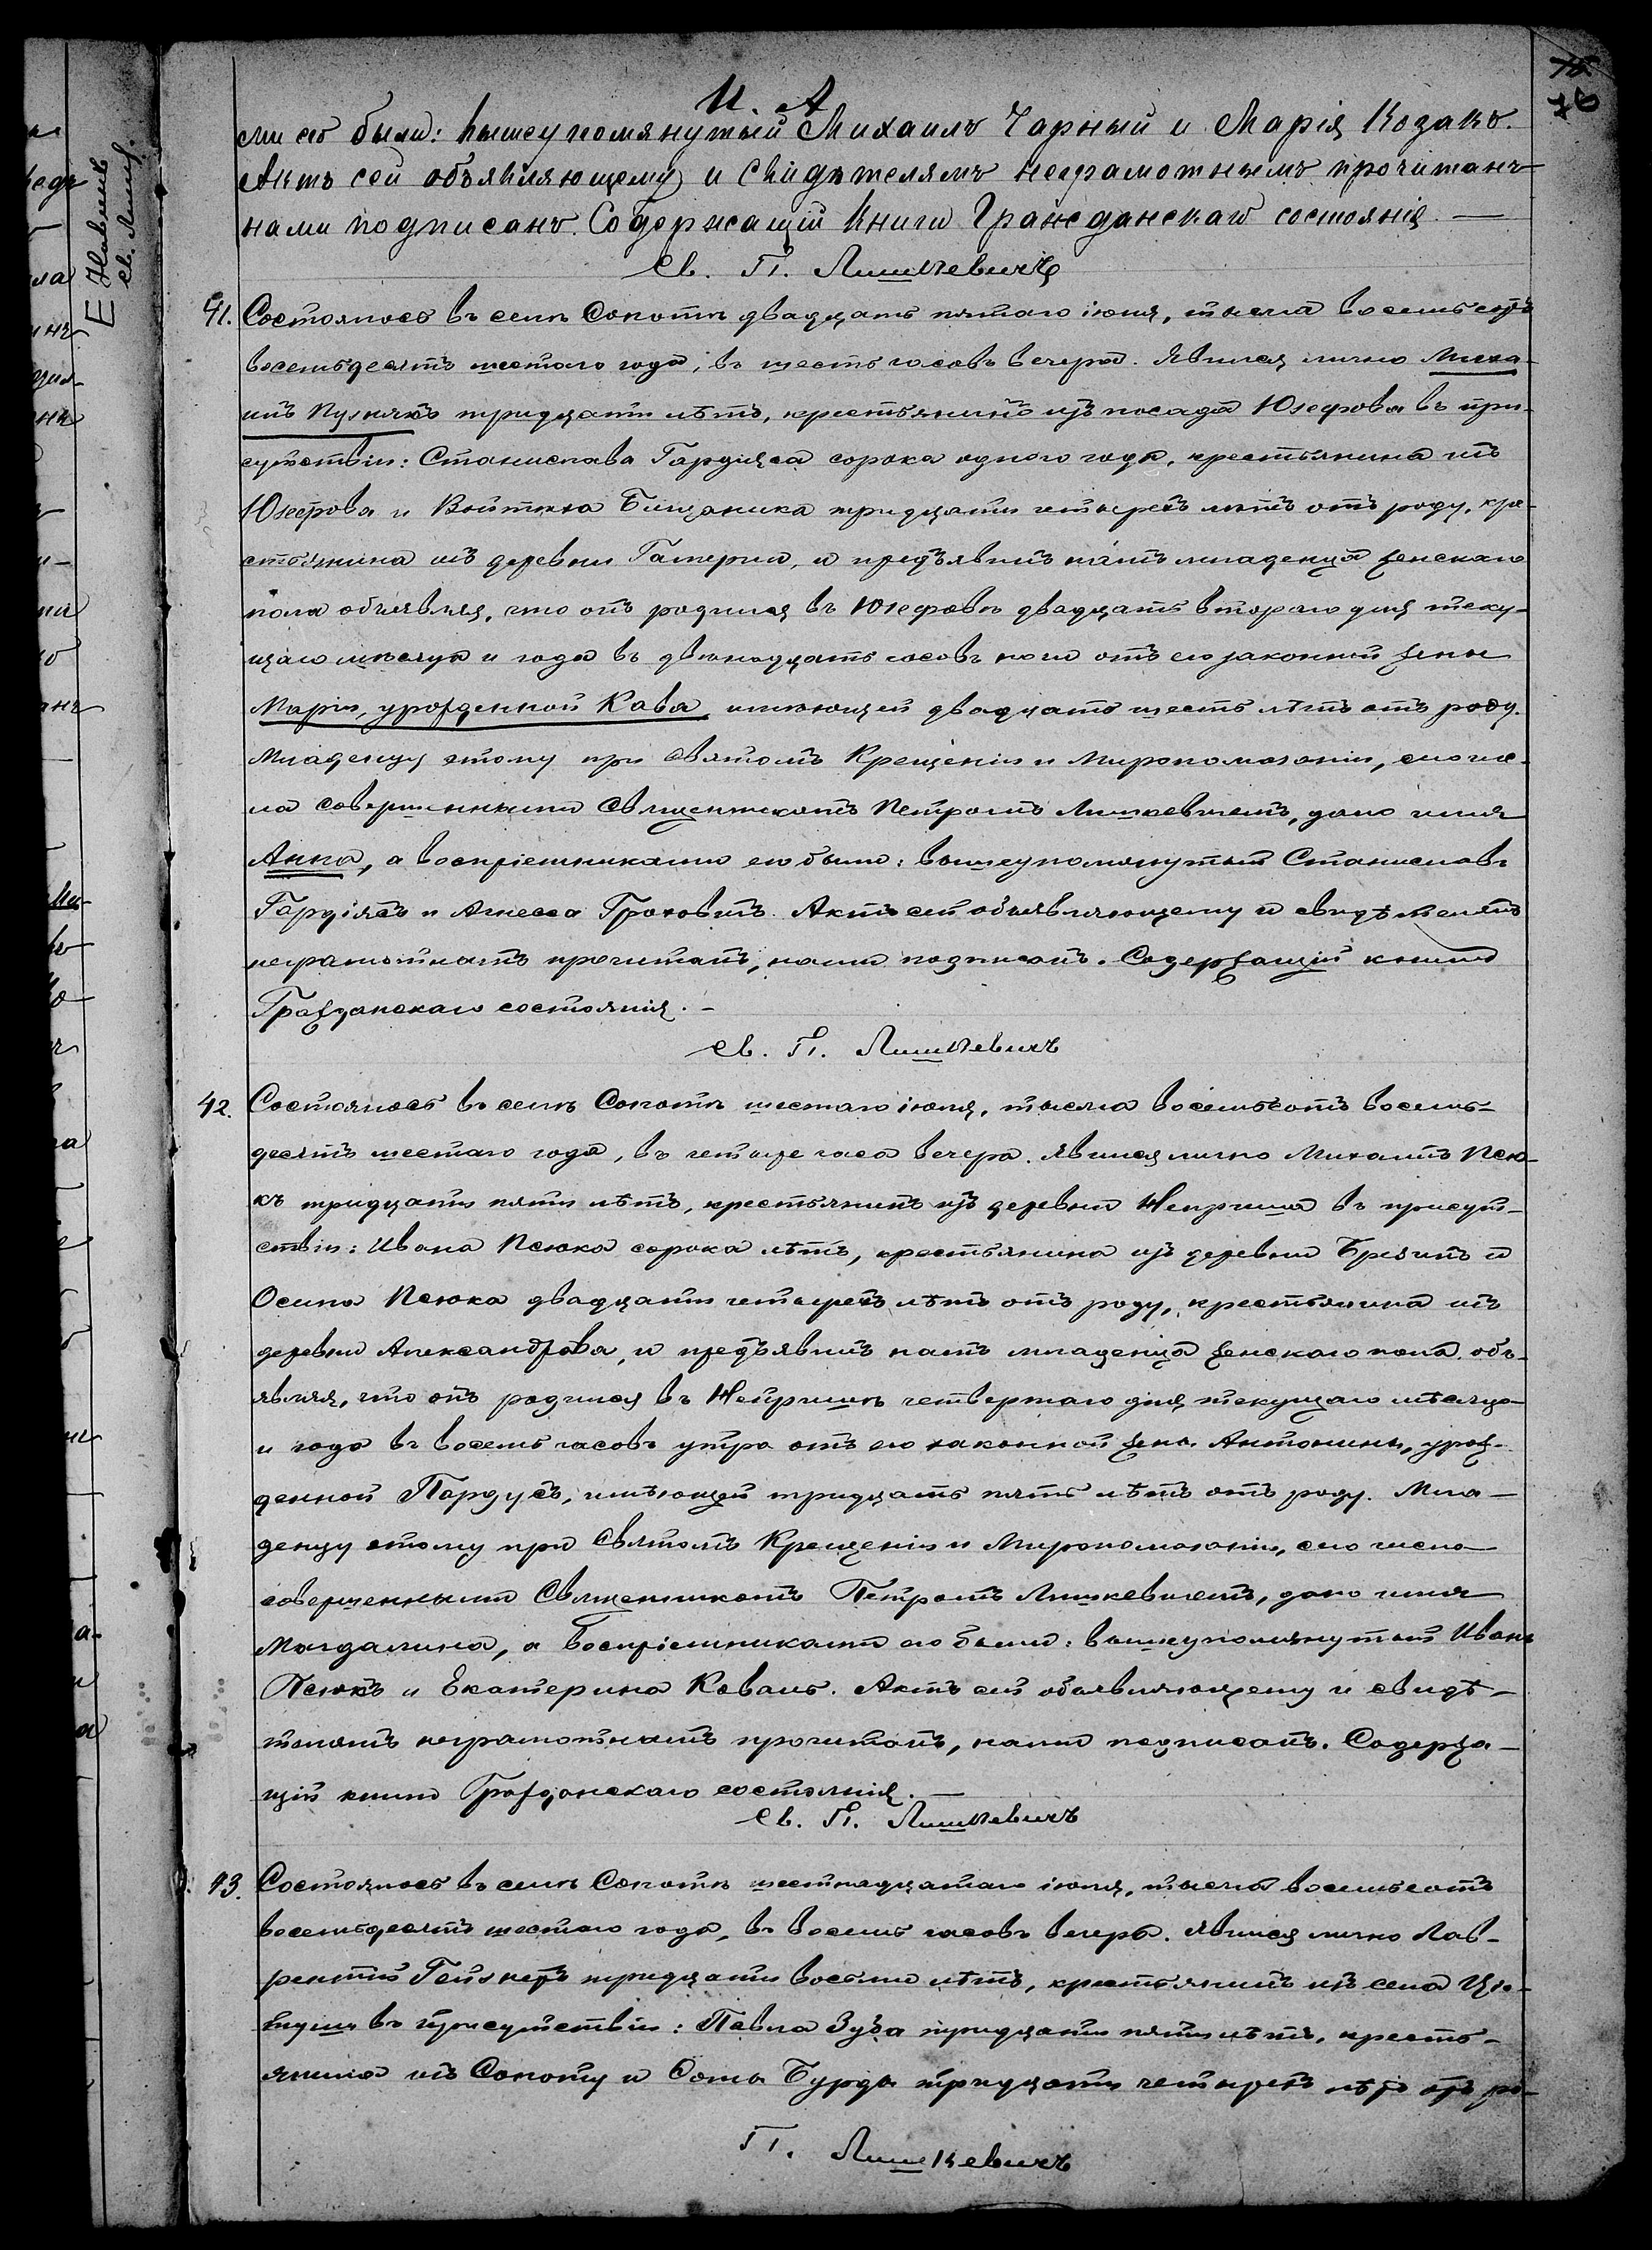 76
И. А
ми его были: вышеупомянутый Михаилъ Чарный и Марія Козакъ.
Актъ сей объявляющему и свидѣтелямъ неграмотнымъ прочитанъ
нами подписанъ. Содержащій книги Гражданскаго состоянія —
Св. П. Лишкевичъ
41. Состоялось въ селѣ Сопотѣ двадцать пятаго іюня, тысяча восемьсотъ
восемьдесятъ шестаго года, въ шесть часовъ вечера. Явился лично Миха-
илъ Пузнякъ тридцати лѣтъ, крестьянинъ изъ посада Юзефова въ при-
сутствіи: Станислава Гардіяса сорока одного года, крестьянина изъ
Юзефова и Войтка тридцати четырехъ лѣтъ отъ роду, кре-
стьянина изъ деревни Гамерни, и предъявилъ намъ младенца женскаго
пола объявляя, что онъ родился въ Юзефовѣ двадцать втораго дня теку-
щаго мѣсяца и года въ двенадцать часовъ ночи отъ его законной жены
Маріи, урожденной Кава, имѣющей двадцать шесть лѣтъ отъ роду.
Младенцу этому при Святомъ Крещеніи и Миропомазаніи, сего чис-
ла совершенными Священникомъ Петромъ Лишкевичемъ, дано имя
Анна, а воспріемниками его были: вышеупомянутый Станиславъ
Гардіясъ и Агнесса Актъ сей объявляющему и свидѣтелямъ
неграмотнымъ прочитанъ, нами подписанъ. Содержащій книги
Гражданскаго состоянія. –
Св. П. Лишкевичъ
42. Состоялось въ селѣ Сопотѣ шестаго іюня, тысяча восемьсотъ восемь-
десятъ шестаго года, въ четыре часа вечера. Явился лично Михаилъ Псю-
къ тридцати пяти лѣтъ, крестьянинъ изъ деревни Неприша въ присут-
ствіи: Ивана Псюка сорока лѣтъ, крестьянина изъ деревни и
Осипа Псюка двадцати четырехъ лѣтъ отъ роду, крестьянина изъ
деревни Александрова, и предъявилъ намъ младенца женскаго пола, объ-
являя, что онъ родился въ Непришѣ четвертаго дня текущаго мѣсяца
и года въ восемь часовъ утра отъ его законной жены Антонины, урож-
денной Пардусъ, имѣющей тридцать пять лѣтъ отъ роду. Мла-
денцу этому при Святомъ Крещеніи и Миропомазаніи, сего числа
совершенными Священникомъ Петромъ Лишкевичемъ, дано имя
Магдалина, а воспріемниками его были: вышеупомянутый Иванъ
Псюкъ и Екатерина Коваль. Актъ сей объявляющему и свидѣ-
телямъ неграмотнымъ прочитанъ, нами подписанъ. Содержа-
щій книги Гражданскаго состоянія. —
Св. П. Лишкевичъ
43. Состоялось въ селѣ Сопотѣ шестнадцатаго іюня, тысяча восемьсотъ
восемьдесятъ шестаго года, въ восемь часовъ вечера. Явился лично Лав-
рентій тридцати восьми лѣтъ, крестьянинъ изъ села Цѣ-
туши въ присутствіи: Павла Зуба тридцати пяти лѣтъ, кресть-
янина изъ Сопоту и Бурда тридцати четырехъ лѣтъ отъ ро-
П. Лишкевичъ